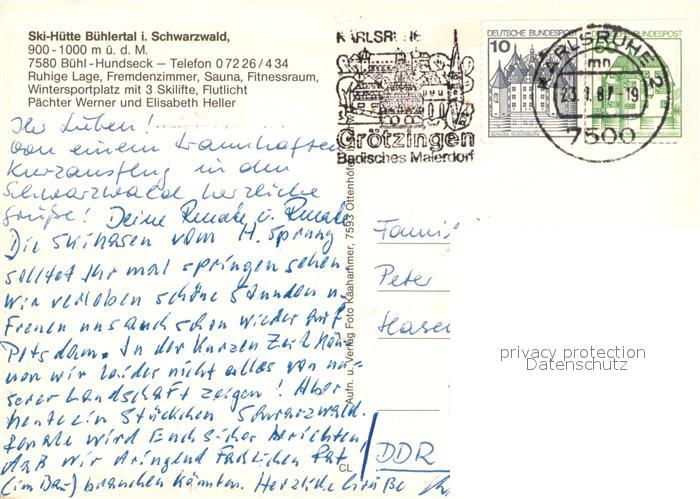 Ski-Hütte Bühlertal i. Schwarzwald,
900-1000 m ü. d. M.
7580 Bühl-Hundseck – Telefon 07226/434
Ruhige Lage, Fremdenzimmer, Sauna, Fitnessraum,
Wintersportplatz mit 3 Skilifte, Flutlicht
Pächter Werner und Elisabeth Heller
Ihr Lieben!
Von einem traumhaften
Kurzausflug in den
Schwarzwald herzliche
Grüße! Deine Renate u. Renate
Die Skihasen vom H. Sprung
solltet Ihr mal springen sehen
Wir verleben schöne Stunden u.
Freuen uns auch schon wieder auf
Potsdam. In der Kurzen Zeit
wir leider nicht alles von un-
serer Landschaft zeigen! Aber
heute ein Stückchen Schwarzwald.
Renate wird Euch sicher berichten,
daß wir dringend fachlichen Rat
(im Bau) brauchen könnten. Herzliche Grüße
CL
Aufn. u. Verlag Foto Kaahammer, 7593 Ottenhöfen
KARLSRUHE
Grötzingen
Badisches Malerdorf
DEUTSCHE BUNDESPOST
10
SCHLOSS GLÜCKSBURG
BUNDESPOST
50
KARLSRUHE
mn
-19
7500
Peter
DDR
privacy protection
Datenschutz